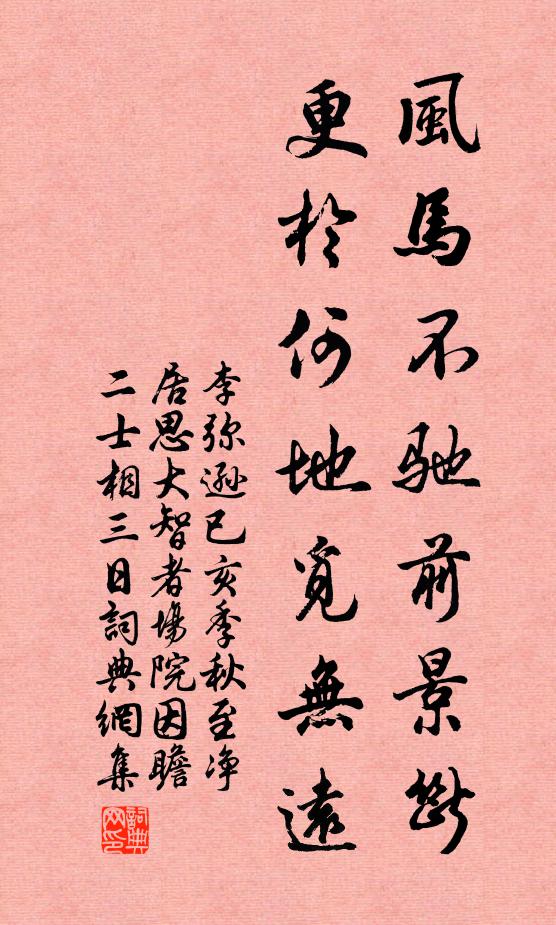 風馬不馳前景斷
更於何地覓無遠
李弥遜已亥季秋至净
居思大智者塲院因瞻
二士相三日詞典網集
詞典
网印